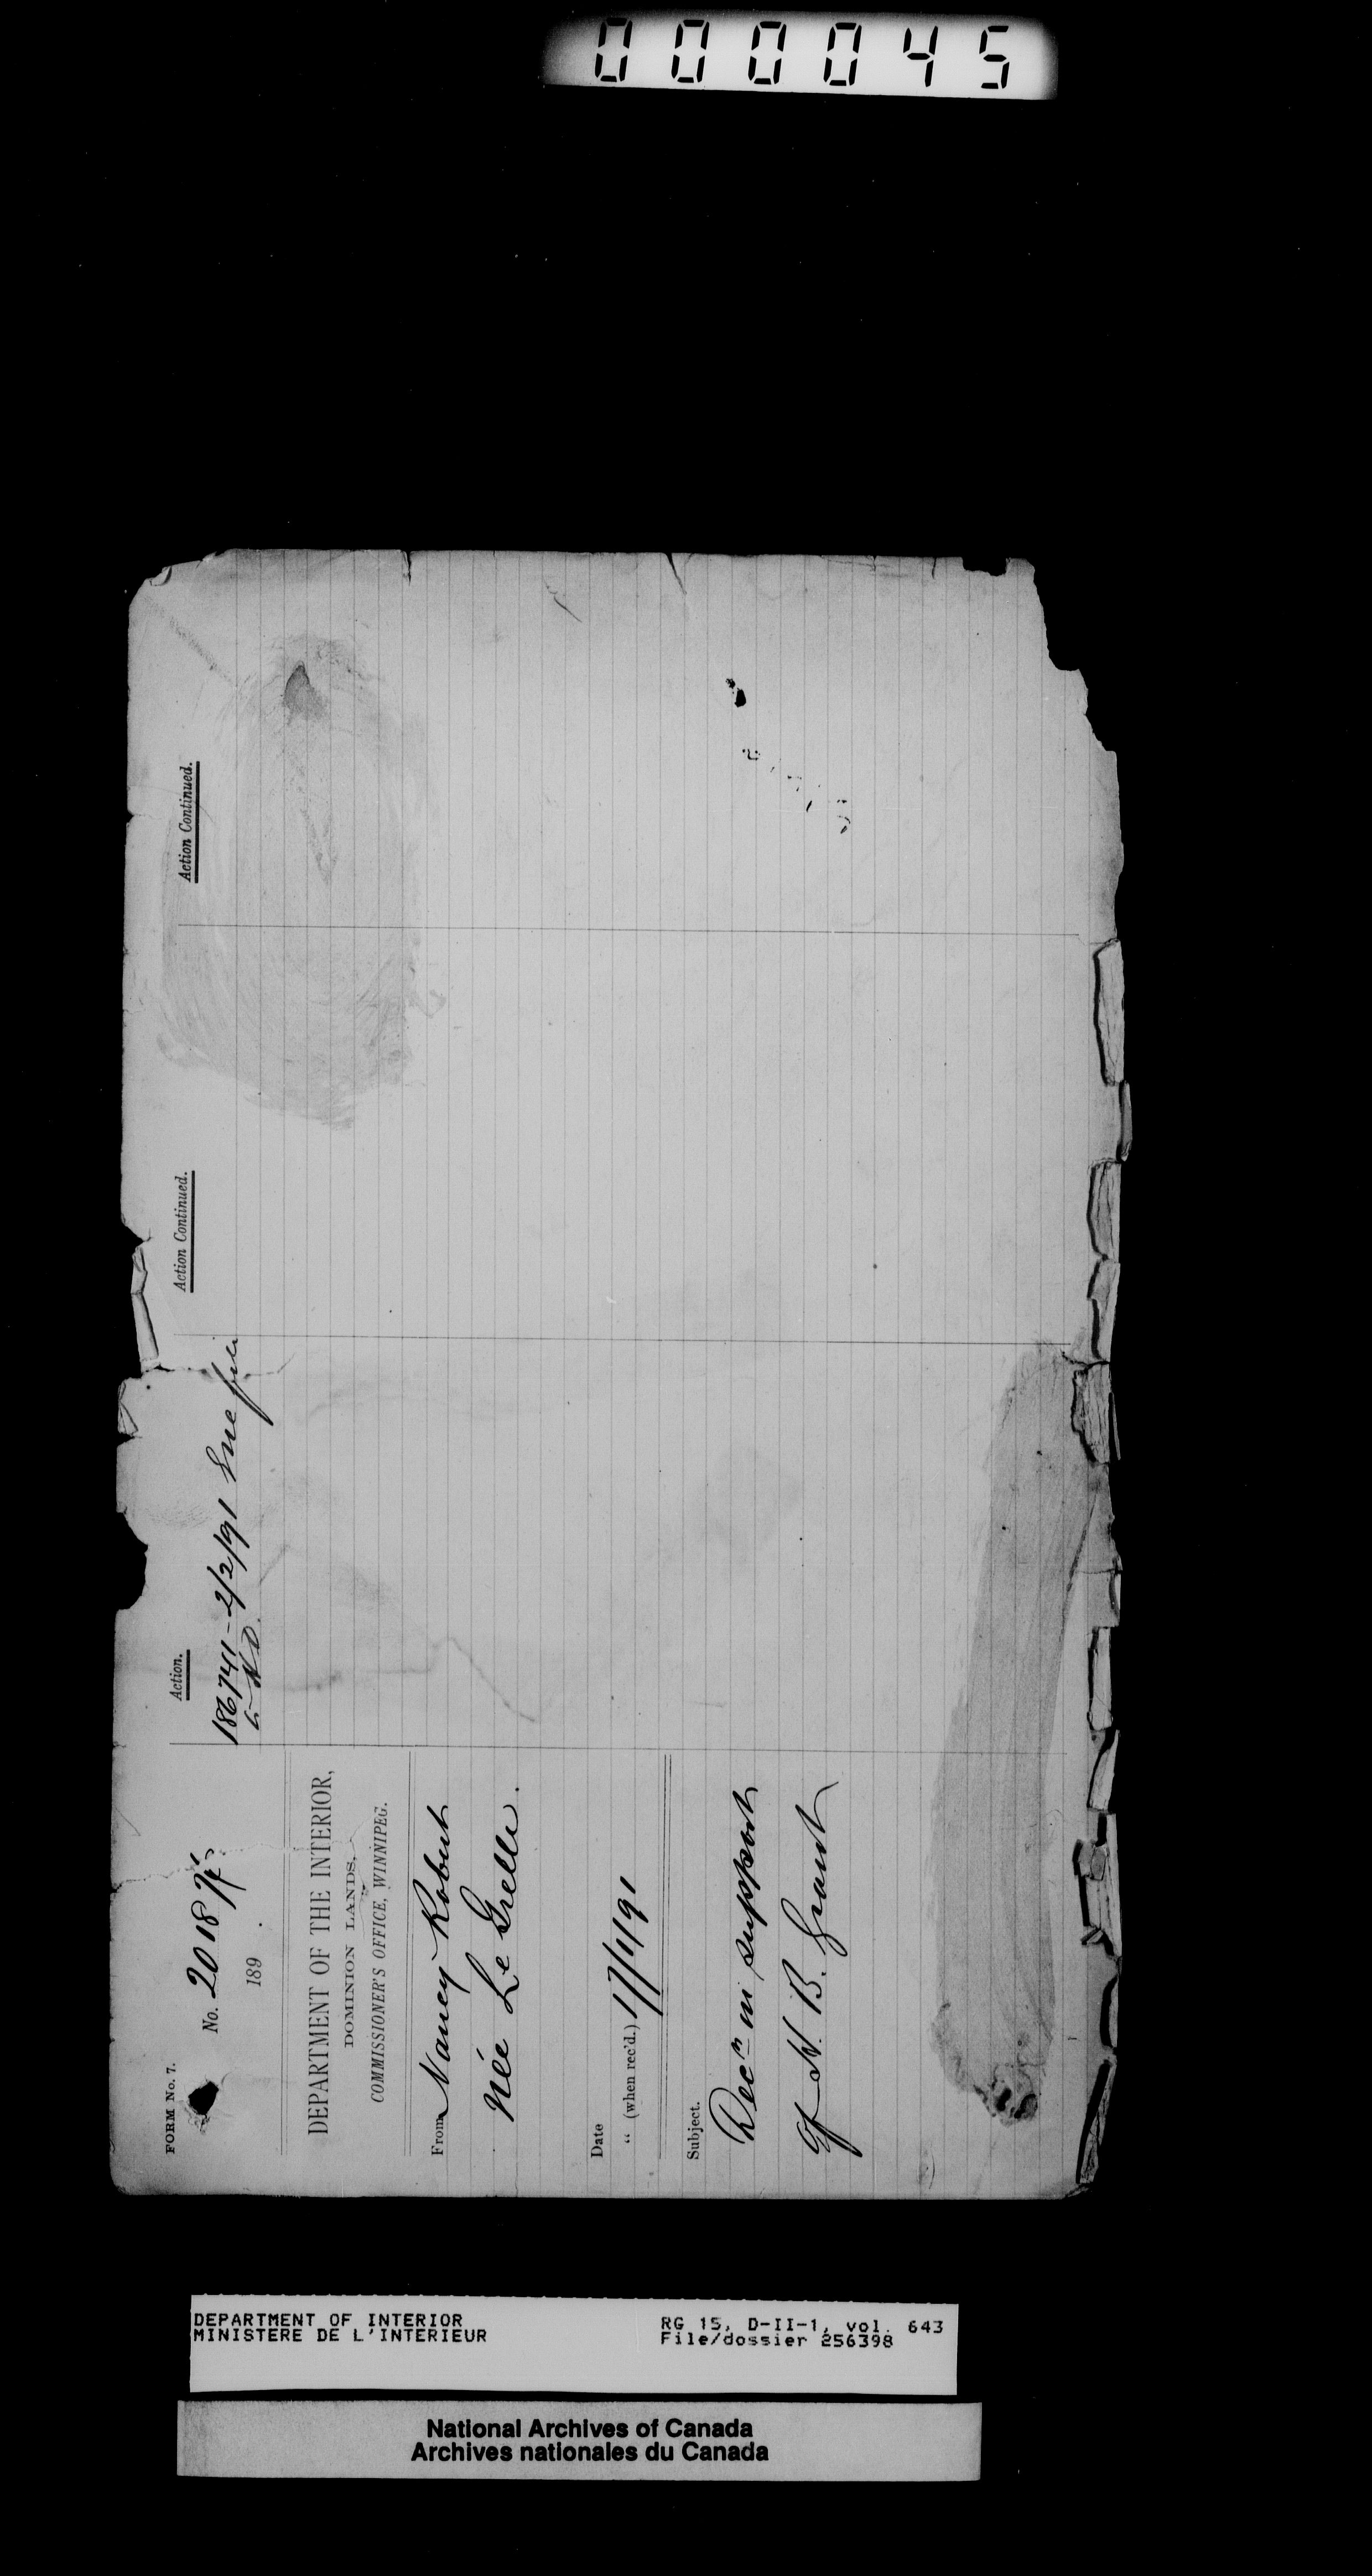 000045
FORM No. 7.
No. 2018
189 .
DEPARTMENT OF THE INTERIOR,
DOMINION LANDS,
COMMISSIONER'S OFFICE, WINNIPEG.
From Nancy Robert
née Le Grelle.
Date
" (when rec'd.) 17/1/91
Subject.
Decn in support
of N. B. Grant
Action.
186741 - 2/2/91
Action Continued.
Action Continued.
DEPARTMENT OF INTERIOR
MINISTERE DE L'INTERIEUR
RG 15, D-II-1, vol. 643
File/dossier 256398
National Archives of Canada
Archives nationales du Canada